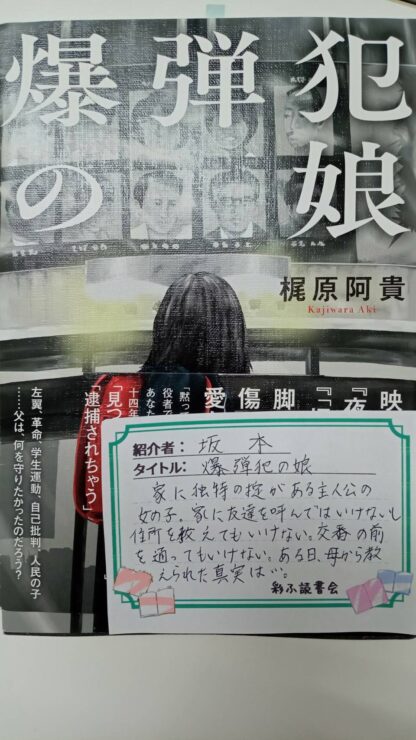 爆弾犯
の娘
梶原阿貴
Kajiwara Aki
映
『夜
脚
傷
愛
「黙っ
役者で
あなた
十四年
「見つ
「逮捕されちゃう」
左翼、革命、学生運動、自己批判、人民の子
……父は、何を守りたかったのだろう?
紹介者: 坂本
タイトル: 爆弾犯の娘
家に独特の掟がある主人公の
女の子。家に友達を呼んではいけないし
住所を教えてもいけない。交番の前
を通ってもいけない。ある日、母から教
えられた真実は…。
彩ふ読書会